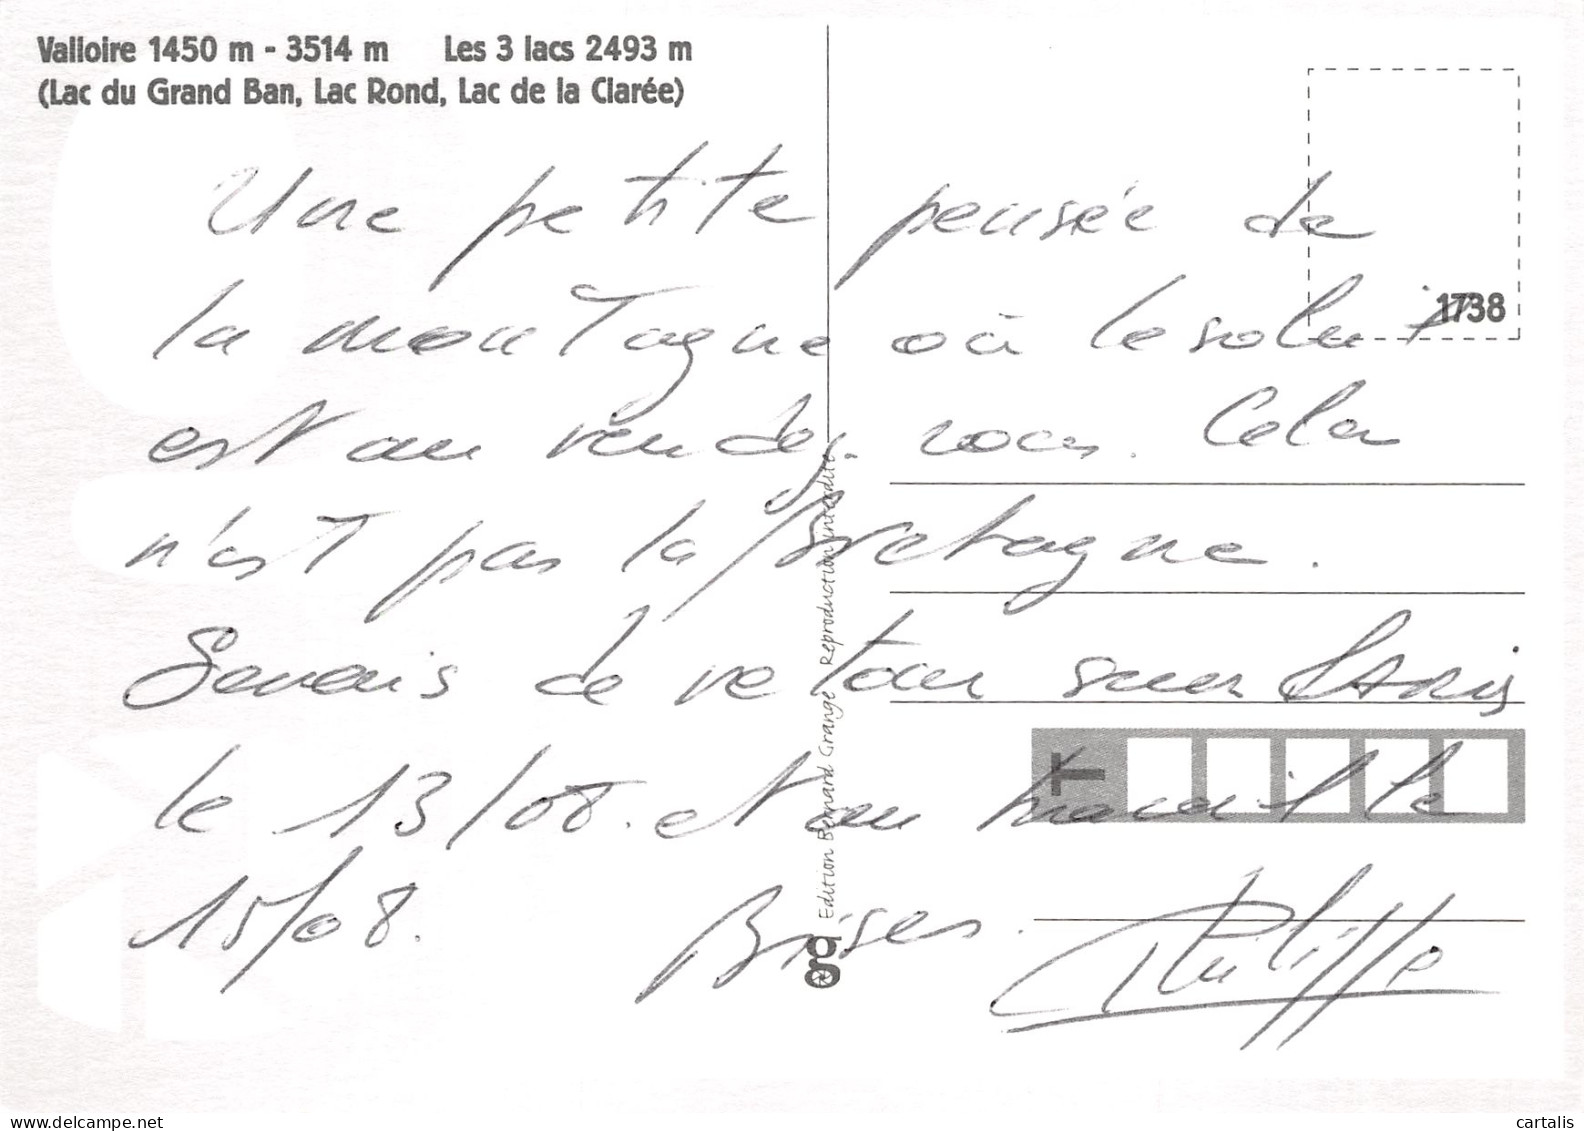 Valloire 1450 m - 3514 m Les 3 lacs 2493 m
(Lac du Grand Ban, Lac Rond, Lac de la Clarée)
1738
Une petite pensée de
la montagne où le soleil
est au rendez-vous. Cela
n'est pas la Bretagne.
Serais de retour sur PARIS
le 13/08. et au travail le
15/08. Bises.
Philippe
Edition Bernard Grange Reproduction interdite
g
T
delcampe.net
cartalis